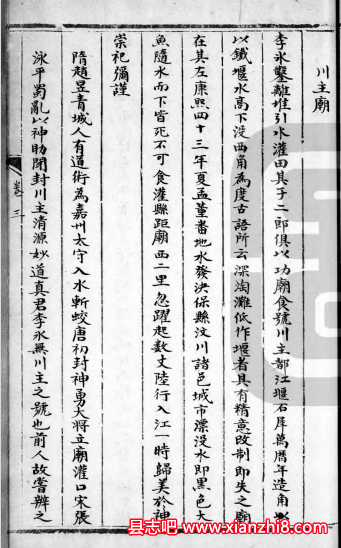 川主廟
李氷鑿離堆引水灌田其子二郎俱以功廟食號川主都江堰石犀萬曆年造角
以鐵堰水高下没西角為度古語所云深淘灘低作堰者具有精意改制即失之廟
在其左康熙四十三年夏孟董畨地水發決保縣汶川諸邑城市漂没水即黑色大
魚隨水而下皆死不可食灌縣距廟西二里忽躍起數丈陸行入江一時歸美於神
崇祀彌謹
隋趙昱青城人有道術為嘉州太守入水斬蛟唐初封神勇大將立廟灌口宋張
泳平蜀亂以神助聞封川主清源妙道真君李氷無川主之號也前人故嘗辨之
卷三
县志吧 www.xianzhi8.com